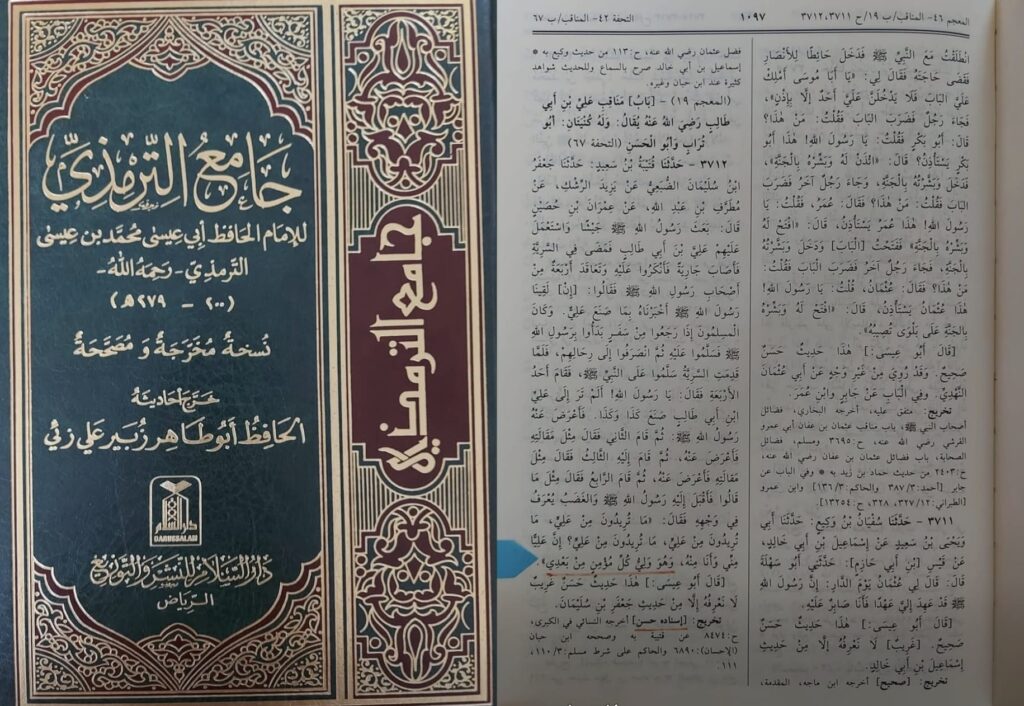 جَامِعُ التِّرمِذِيِّ
لِلإمَامِ الحَافِظِ أَبِي عِيسَى مُحَمَّد بن عِيسَى
التِّرمِذِيّ - رَحِمَهُ اللهُ -
(٢٠٠ - ٢٧٩ هـ)
نُسخَةٌ مُخَرَّجَةٌ وَ مُصَحَّحَةٌ
خَرَّجَ أَحَادِيثَهُ
الحَافِظ أَبُو طَاهِر زُبَير عَلِي زَئِي
دار السلام
DARUSSALAM
دَارُ السَّلَامِ لِلنَّشْرِ وَالتَّوزِيعِ
الرِّيَاض
جامع الترمذي
المعجم ٤٦- المناقب/ب ١٩/ح ٣٧١١، ٣٧١٢
١٠٩٧
التحفة ٤٢- المناقب/ب ٦٧
انْطَلَقْتُ مَعَ النَّبِيِّ ﷺ فَدَخَلَ حَائِطًا لِلأَنْصَارِ
فَقَضَى حَاجَتَهُ فَقَالَ لِي: «يَا أَبَا مُوسَى أَمْلِكْ
عَلَيَّ الْبَابَ فَلَا يَدْخُلَنَّ عَلَيَّ أَحَدٌ إِلَّا بِإِذْنٍ»،
فَجَاءَ رَجُلٌ فَضَرَبَ الْبَابَ فَقُلْتُ: مَنْ هٰذَا؟
قَالَ: أَبُو بَكْرٍ فَقُلْتُ: يَا رَسُولَ اللهِ! هٰذَا أَبُو
بَكْرٍ يَسْتَأْذِنُ؟ قَالَ: «ائْذَنْ لَهُ وَبَشِّرْهُ بِالْجَنَّةِ»،
فَدَخَلَ وَبَشَّرْتُهُ بِالْجَنَّةِ، وَجَاءَ رَجُلٌ آخَرُ فَضَرَبَ
الْبَابَ فَقُلْتُ: مَنْ هٰذَا؟ فَقَالَ: عُمَرُ، فَقُلْتُ: يَا
رَسُولَ اللهِ! هٰذَا عُمَرُ يَسْتَأْذِنُ، قَالَ: «افْتَحْ لَهُ
وَبَشِّرْهُ بِالْجَنَّةِ» فَفَتَحْتُ [الْبَابَ] وَدَخَلَ وَبَشَّرْتُهُ
بِالْجَنَّةِ، فَجَاءَ رَجُلٌ آخَرُ فَضَرَبَ الْبَابَ فَقُلْتُ:
مَنْ هٰذَا؟ فَقَالَ: عُثْمَانُ، قُلْتُ: يَا رَسُولَ اللهِ!
هٰذَا عُثْمَانُ يَسْتَأْذِنُ، قَالَ: «افْتَحْ لَهُ وَبَشِّرْهُ
بِالْجَنَّةِ عَلَى بَلْوَى تُصِيبُهُ»
[قَالَ أَبُو عِيسَى:] هٰذَا حَدِيثٌ حَسَنٌ
صَحِيحٌ. وَقَدْ رُوِيَ مِنْ غَيْرِ وَجْهٍ عَنْ أَبِي عُثْمَانَ
النَّهْدِيِّ. وَفِي الْبَابِ عَنْ جَابِرٍ وَابْنِ عُمَرَ.
تخريج: متفق عليه، أخرجه البخاري، فضائل
أصحاب النبي ﷺ، باب مناقب عثمان بن عفان أبي عمرو
القرشي رضي الله عنه، ح:٣٦٩٥ ومسلم، فضائل
الصحابة، باب فضائل عثمان بن عفان رضي الله عنه،
ح:٢٤٠٣ من حديث حماد بن زيد به * وفي الباب عن
جابر [أحمد:٣/ ٣٨٧ والحاكم:٣/ ١٣٦] وابن عمرو
[الطبراني:١٢/ ٣٢٧، ٣٢٨، ح:١٣٢٥٤].
٣٧١١ - حَدَّثَنَا سُفْيَانُ بْنُ وَكِيعٍ: حَدَّثَنَا أَبِي
وَيَحْيَى بْنُ سَعِيدٍ عَنْ إِسْمَاعِيلَ بْنِ أَبِي خَالِدٍ،
عَنْ قَيْسِ [بْنِ أَبِي حَازِمٍ]: حَدَّثَنِي أَبُو سَهْلَةَ
قَالَ: قَالَ لِي عُثْمَانُ يَوْمَ الدَّارِ: إِنَّ رَسُولَ اللهِ
ﷺ قَدْ عَهِدَ إِلَيَّ عَهْدًا فَأَنَا صَابِرٌ عَلَيْهِ.
[قَالَ أَبُو عِيسَى:] هٰذَا حَدِيثٌ حَسَنٌ
صَحِيحٌ. [غَرِيبٌ] لَا نَعْرِفُهُ إِلَّا مِنْ حَدِيثِ
إِسْمَاعِيلَ بْنِ أَبِي خَالِدٍ.
تخريج: [صحيح] أخرجه ابن ماجه، المقدمة،
فضل عثمان رضي الله عنه، ح:١١٣ من حديث وكيع به *
إسماعيل بن أبي خالد صرح بالسماع وللحديث شواهد
كثيرة عند ابن حبان وغيره.
(المعجم ١٩) - [بَابُ] مَنَاقِبِ عَلِيِّ بْنِ أَبِي
طَالِبٍ رَضِيَ اللهُ عَنْهُ يُقَالُ: وَلَهُ كُنْيَتَانِ: أَبُو
تُرَابٍ وَأَبُو الْحَسَنِ (التحفة ٦٧)
٣٧١٢ - حَدَّثَنَا قُتَيْبَةُ بْنُ سَعِيدٍ: حَدَّثَنَا جَعْفَرُ
ابْنُ سُلَيْمَانَ الضُّبَعِيُّ عَنْ يَزِيدَ الرِّشْكِ، عَنْ
مُطَرِّفِ بْنِ عَبْدِ اللهِ، عَنْ عِمْرَانَ بْنِ حُصَيْنٍ
قَالَ: بَعَثَ رَسُولُ اللهِ ﷺ جَيْشًا وَاسْتَعْمَلَ
عَلَيْهِمْ عَلِيَّ بْنَ أَبِي طَالِبٍ فَمَضَى فِي السَّرِيَّةِ
فَأَصَابَ جَارِيَةً فَأَنْكَرُوا عَلَيْهِ وَتَعَاقَدَ أَرْبَعَةٌ مِنْ
أَصْحَابِ رَسُولِ اللهِ ﷺ فَقَالُوا: [إِنْ] لَقِينَا
رَسُولَ اللهِ ﷺ أَخْبَرْنَاهُ بِمَا صَنَعَ عَلِيٌّ. وَكَانَ
الْمُسْلِمُونَ إِذَا رَجَعُوا مِنْ سَفَرٍ بَدَأُوا بِرَسُولِ اللهِ
ﷺ فَسَلَّمُوا عَلَيْهِ ثُمَّ انْصَرَفُوا إِلَى رِحَالِهِمْ، فَلَمَّا
قَدِمَتِ السَّرِيَّةُ سَلَّمُوا عَلَى النَّبِيِّ ﷺ، فَقَامَ أَحَدُ
الأَرْبَعَةِ فَقَالَ: يَا رَسُولَ اللهِ! أَلَمْ تَرَ إِلَى عَلِيِّ
ابْنِ أَبِي طَالِبٍ صَنَعَ كَذَا وَكَذَا. فَأَعْرَضَ عَنْهُ
رَسُولُ اللهِ ﷺ: ثُمَّ قَامَ الثَّانِي فَقَالَ مِثْلَ مَقَالَتِهِ
فَأَعْرَضَ عَنْهُ، ثُمَّ قَامَ إِلَيْهِ الثَّالِثُ فَقَالَ مِثْلَ
مَقَالَتِهِ فَأَعْرَضَ عَنْهُ، ثُمَّ قَامَ الرَّابِعُ فَقَالَ مِثْلَ مَا
قَالُوا فَأَقْبَلَ إِلَيْهِ رَسُولُ اللهِ ﷺ وَالْغَضَبُ يُعْرَفُ
فِي وَجْهِهِ فَقَالَ: «مَا تُرِيدُونَ مِنْ عَلِيٍّ، مَا
تُرِيدُونَ مِنْ عَلِيٍّ، مَا تُرِيدُونَ مِنْ عَلِيٍّ؟ إِنَّ عَلِيًّا
مِنِّي وَأَنَا مِنْهُ، وَهُوَ وَلِيُّ كُلِّ مُؤْمِنٍ مِنْ بَعْدِي».
[قَالَ أَبُو عِيسَى:] هٰذَا حَدِيثٌ حَسَنٌ غَرِيبٌ
لَا نَعْرِفُهُ إِلَّا مِنْ حَدِيثِ جَعْفَرِ بْنِ سُلَيْمَانَ.
تخريج: [إسناده حسن] أخرجه النسائي في الكبرى،
ح:٨٤٧٤ عن قتيبة به وصححه ابن حبان
(الإحسان):٦٨٩٠ والحاكم على شرط مسلم:٣/ ١١٠،
١١١.